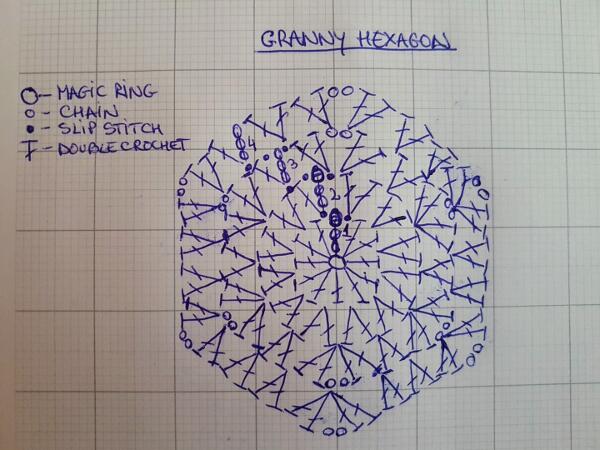 GRANNY HEXAGON
- MAGIC RING
- CHAIN
- SLIP STITCH
- DOUBLE CROCHET
4
3
2
1